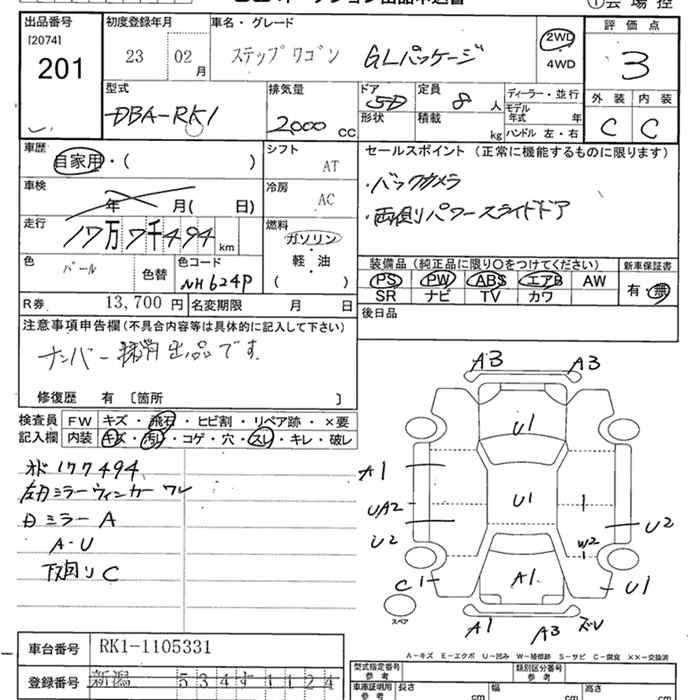 ①会場控
出品番号
[2074]
201
初度登録年月
23 02 月
車名・グレード
ステップワゴン GLパッケージ
2WD
4WD
評価点
3
外装 内装
C C
型式
DBA-RK1
排気量
2000 cc
ドア
5D
形状
定員
8 人
積載
kg
ディーラー・並行
モデル年式 年
ハンドル 左・右
車歴
自家用・( )
シフト
AT
セールスポイント (正常に機能するものに限ります)
・バックカメラ
・両側パワースライドドア
車検
年 月( 日)
冷房
AC
走行
17万7千494 km
燃料
ガソリン
・軽・油
( )
色
パール
色替
色コード
NH624P
装備品 (純正品に限り〇をつけてください)
PS PW ABS エアB AW
SR ナビ TV カワ
新車保証書
有・無
R券 13,700 円
名変期限 月 日
後日品
注意事項申告欄(不具合内容等は具体的に記入して下さい)
ナンバー 出品です
修復歴 有 [箇所 ]
検査員
記入欄
FW キズ・飛石・ヒビ割・リペア跡・×要
内装 キズ・汚レ・コゲ・穴・スレ・キレ・破レ
177494
左ミラーウィンカーワレ
ミラーA
A-U
下回りC
A3 A3
U1
A1
UA2
U2
U1
W2
U2
C1
A1
U1
スペア
A1 A3 ズレ
A-キズ E-エクボ U-凹ミ W-補修跡 S-サビ C-腐食 ××-交換済
車台番号 RK1-1105331
登録番号 新潟 534す1124
型式指定番号
参考
類別区分番号
参考
車庫証明用
参考
長さ cm
幅 cm
高さ cm